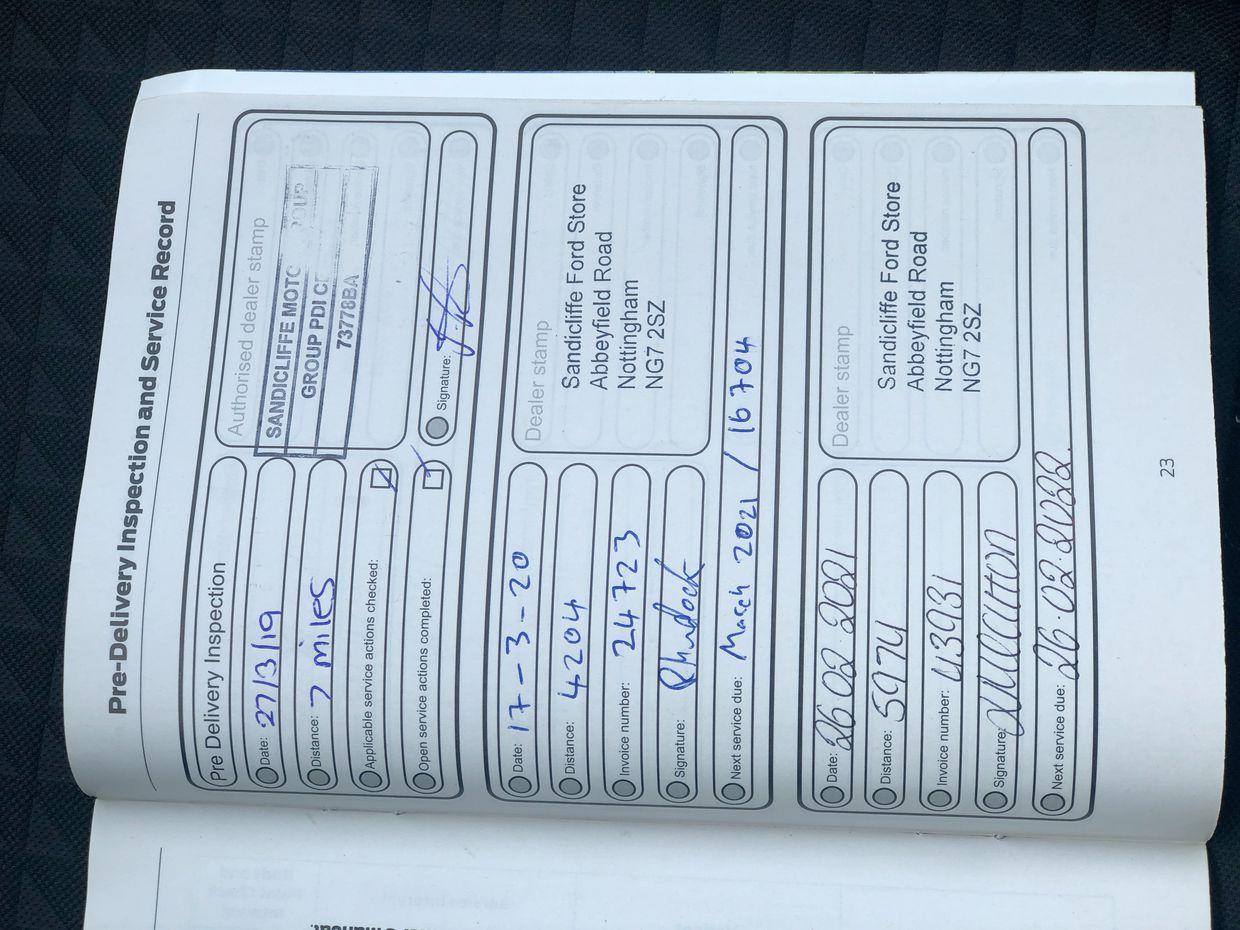 Pre-Delivery Inspection and Service Record
Pre Delivery Inspection
Date: 27/3/19
Distance: 7 miles
Applicable service actions checked:
Open service actions completed:
Authorised dealer stamp
SANDICLIFFE MOTO
GROUP PDI C
73778BA
Signature:
Date: 17-3-20
Distance: 4204
Invoice number: 24723
Signature:
Next service due: March 2021 / 16704
Dealer stamp
Sandicliffe Ford Store
Abbeyfield Road
Nottingham
NG7 2SZ
Date: 26 02 2021
Distance: 5974
Invoice number: 43931
Signature:
Next service due: 26.02.2022.
Dealer stamp
Sandicliffe Ford Store
Abbeyfield Road
Nottingham
NG7 2SZ
23